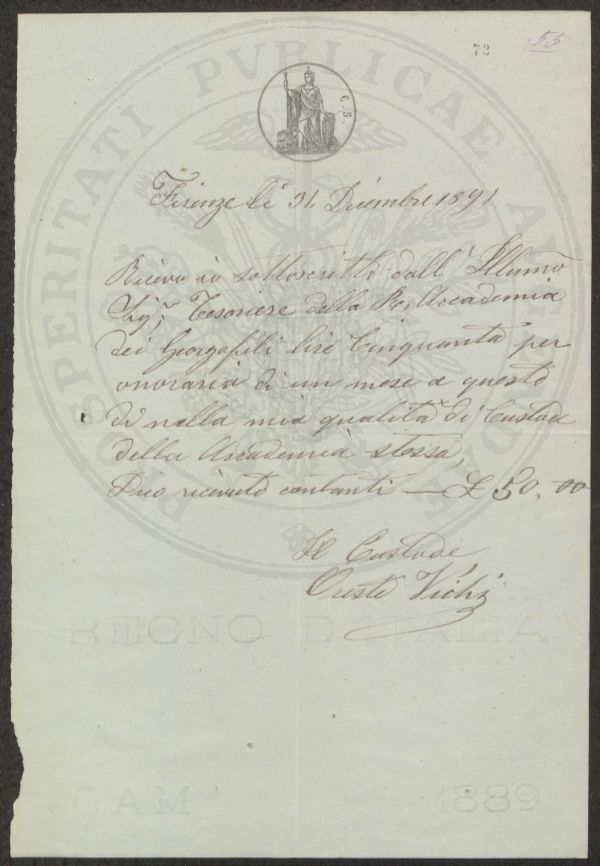 72
55
PROSPERITATI PVBLICAE AVGENDAE
C. 5.
Firenze li 31. Dicembre 1891
Ricevo io sottoscritto dall' Illumo
Sig; Tesoriere della R. Accademia
dei Georgofili lire Cinquanta per
onoraria di un mese a questo
dì nella mia qualità di Custode
della Accademia stessa,
Dico ricevuto contanti — £ 50.00
Il Custode
Oreste Vichi
REGNO D'ITALIA
GAM 889